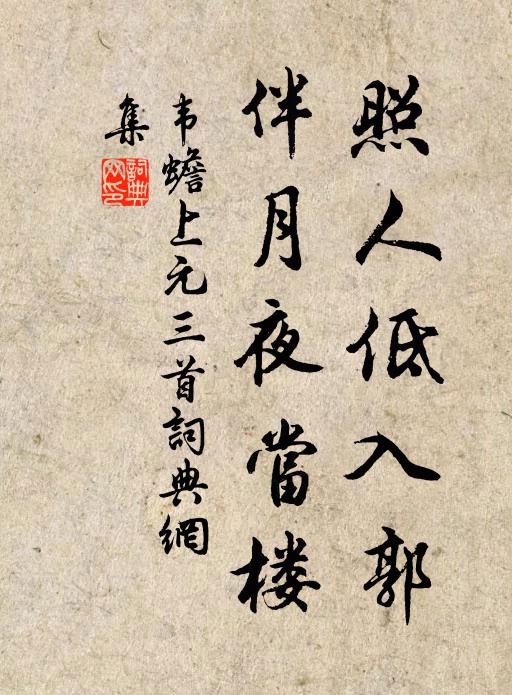 照人低入郭
伴月夜當楼
韦蟾上元三首詞典網
集
詞典网印